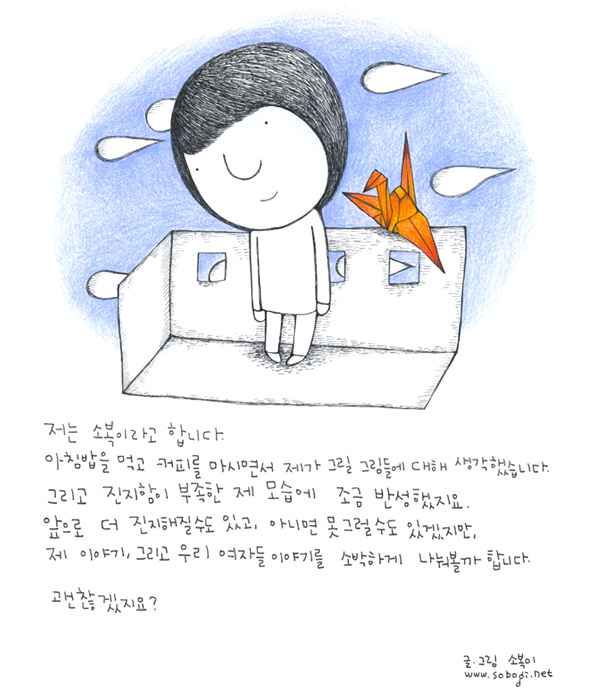 저는 소복이라고 합니다.
아침밥을 먹고 커피를 마시면서 제가 그릴 그림들에 대해 생각했습니다.
그리고 진지함이 부족한 제 모습에 조금 반성했지요.
앞으로 더 진지해질수도 있고, 아니면 못그럴수도 있겠지만,
제 이야기, 그리고 우리 여자들 이야기를 소박하게 나눠볼까 합니다.
괜찮겠지요?
글·그림 소복이
www.sobogi.net